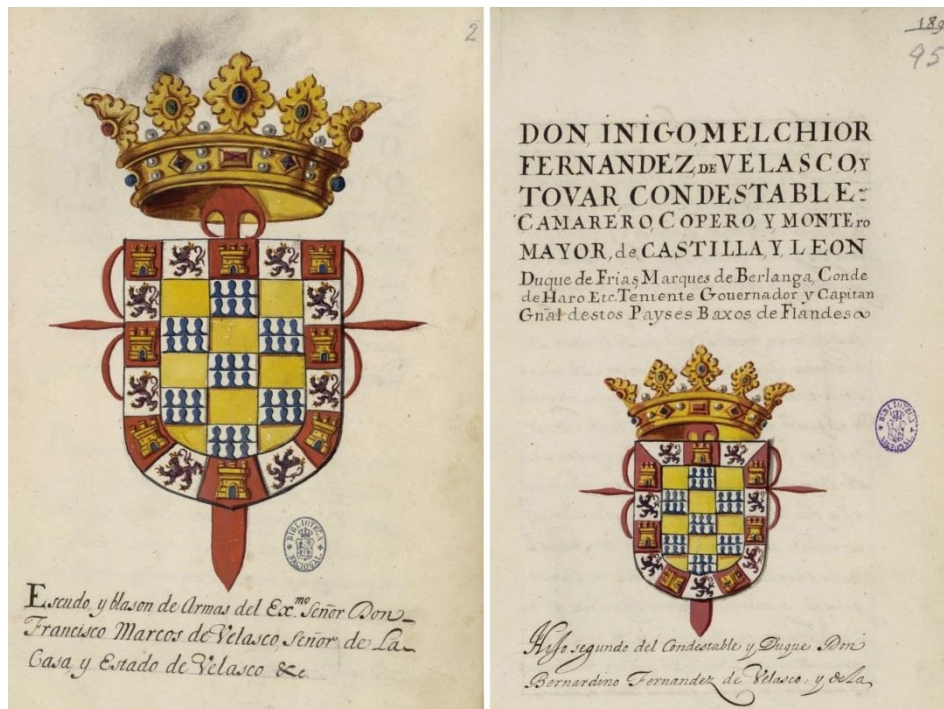 2
Escudo, y blason de Armas del Ex.mo Señor Don
Francisco Marcos de Velasco, Señor de La
Casa, y Estado de Velasco &c.
BIBLIOTECA
NACIONAL
189
95
DON INIGO, MELCHIOR
FERNANDEZ, DE VELASCO, Y
TOVAR CONDESTABLE
CAMARERO, COPERO, Y MONTEro
MAYOR, de CASTILLA, Y LEON
Duque de Frias, Marques de Berlanga, Conde
de Haro Etc. Teniente Gouernador y Capitan
Gñal destos Payses Baxos de Flandes
BIBLIOTECA
NACIONAL
Hijo segundo del Condestable y Duque Don
Bernardino Fernandez de Velasco, y de la